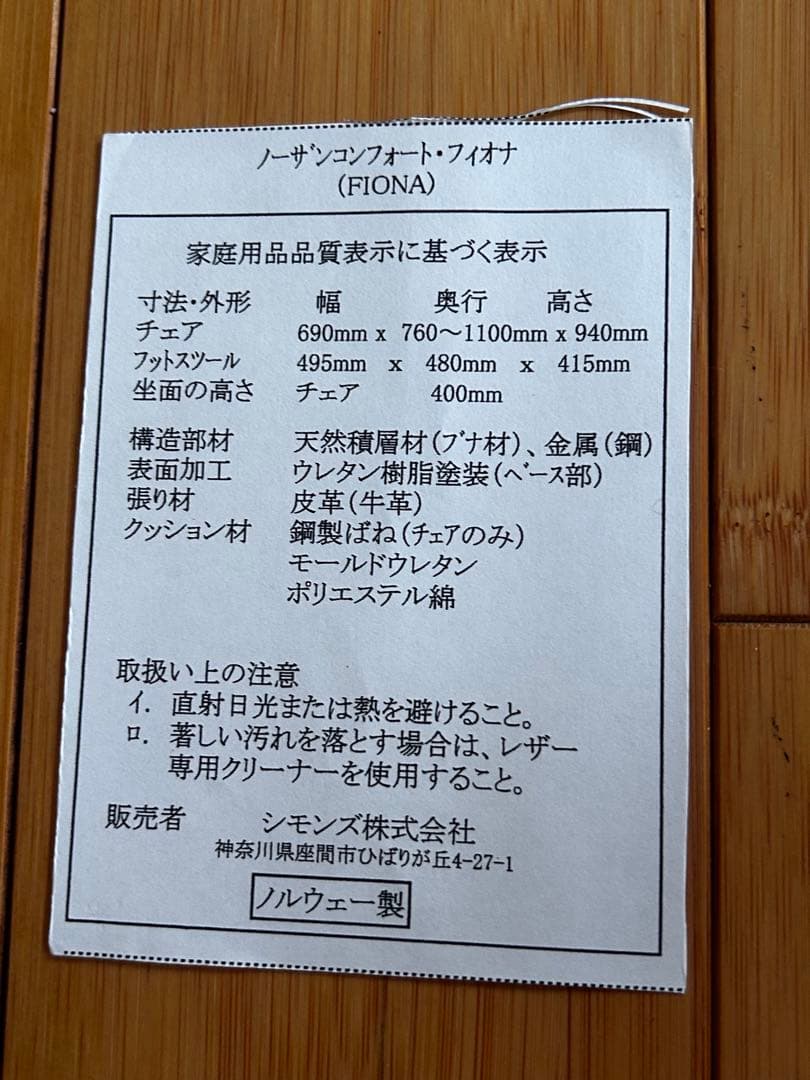 ノーザンコンフォート・フィオナ
(FIONA)
家庭用品品質表示に基づく表示
寸法・外形 幅 奥行 高さ
チェア 690mm x 760〜1100mm x 940mm
フットスツール 495mm x 480mm x 415mm
坐面の高さ チェア 400mm
構造部材 天然積層材(ブナ材)、金属(鋼)
表面加工 ウレタン樹脂塗装(ベース部)
張り材 皮革(牛革)
クッション材 鋼製ばね(チェアのみ)
モールドウレタン
ポリエステル綿
取扱い上の注意
イ. 直射日光または熱を避けること。
ロ. 著しい汚れを落とす場合は、レザー
専用クリーナーを使用すること。
販売者 シモンズ株式会社
神奈川県座間市ひばりが丘4-27-1
ノルウェー製